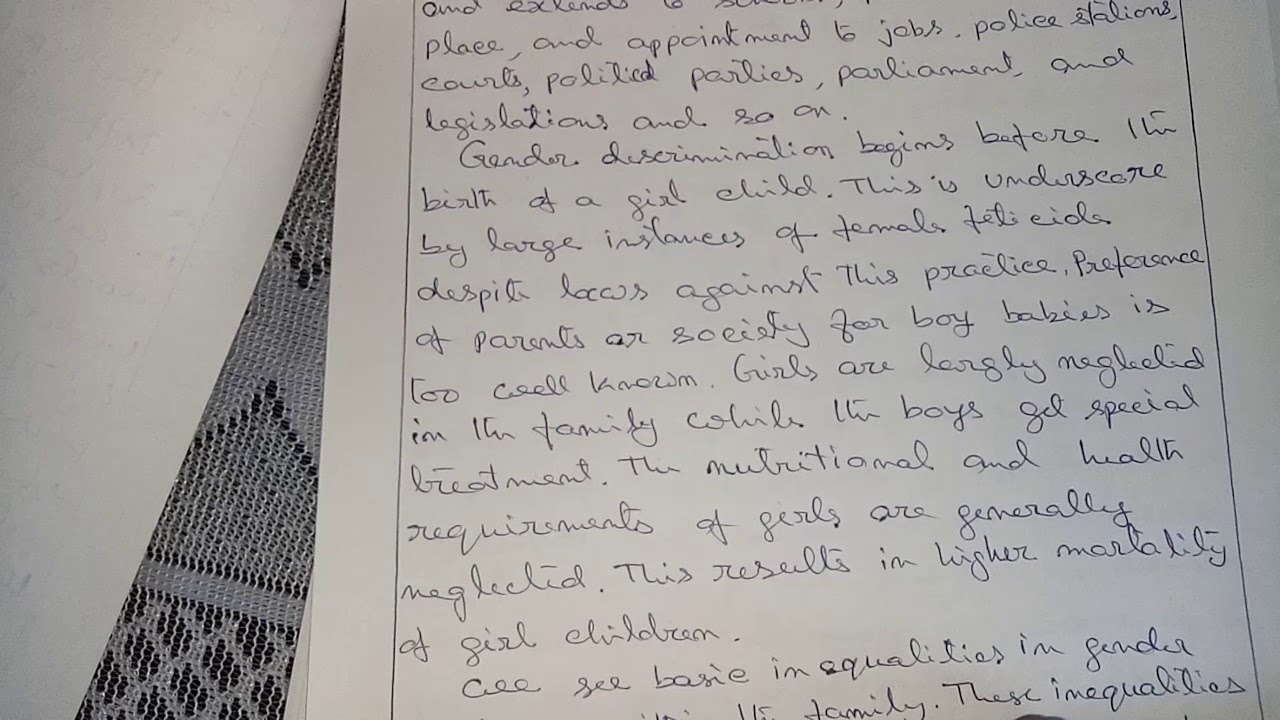 and extends to
place, and appointment to jobs, police stations,
courts, political parties, parliament, and
legislations and so on.
Gender discrimination begins before the
birth of a girl child. This is underscore
by large instances of female feticide
despite laws against this practice. Preference
of parents or society for boy babies is
too well known. Girls are largly neglected
in the family while the boys get special
treatment. The nutritional and health
requirements of girls are generally
neglected. This results in higher mortality
of girl children.
we see basic inequalities in gender
the family. These inequalities